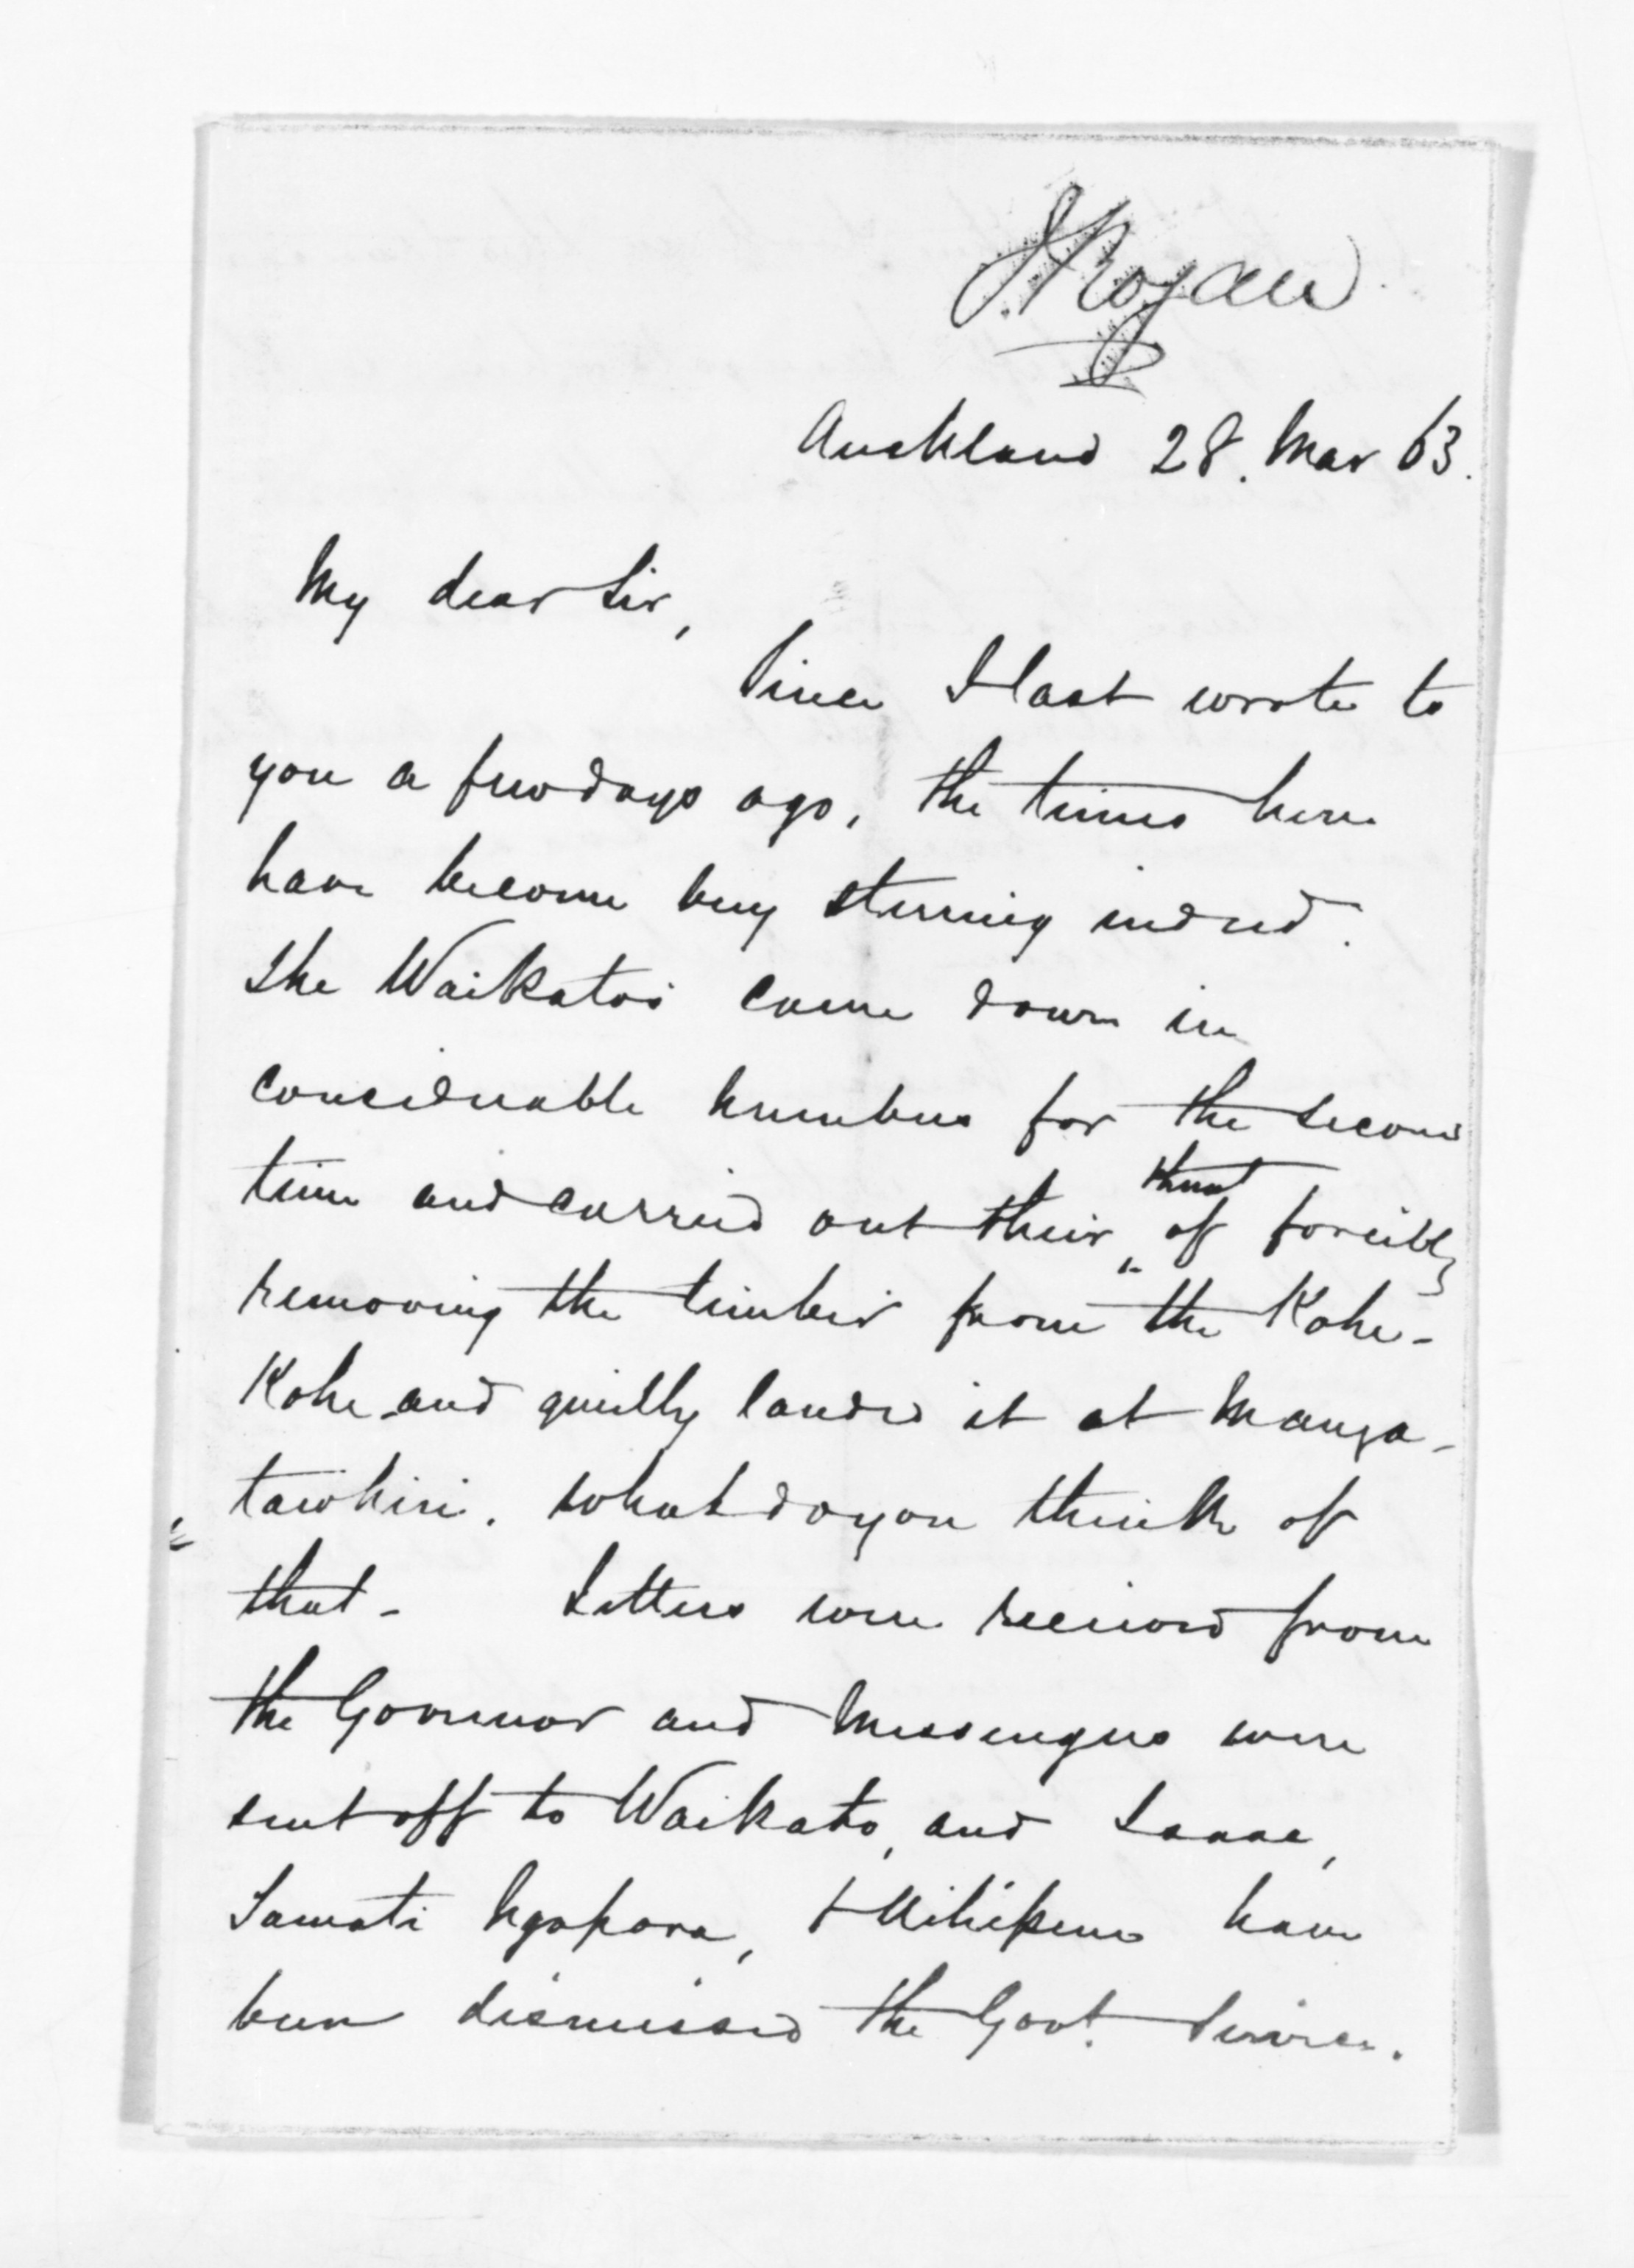 J. Rogan
Auckland 28. Mar 63.
My dear Sir,
Since I last wrote to
you a few days ago, the times here
have become very stirring indeed.
The Waikatos came down in
considerable numbers for the second
time and carried out their threat of forcibly
removing the timber from the Kohe-
Kohe and quietly landed it at Manga-
tawhiri. What do you think of
that - Letters were received from
the Governor and Messengers were
sent off to Waikato, and Isaac,
Tamati Ngapora, & Mihipene have
been dismissed the Govt. Service.